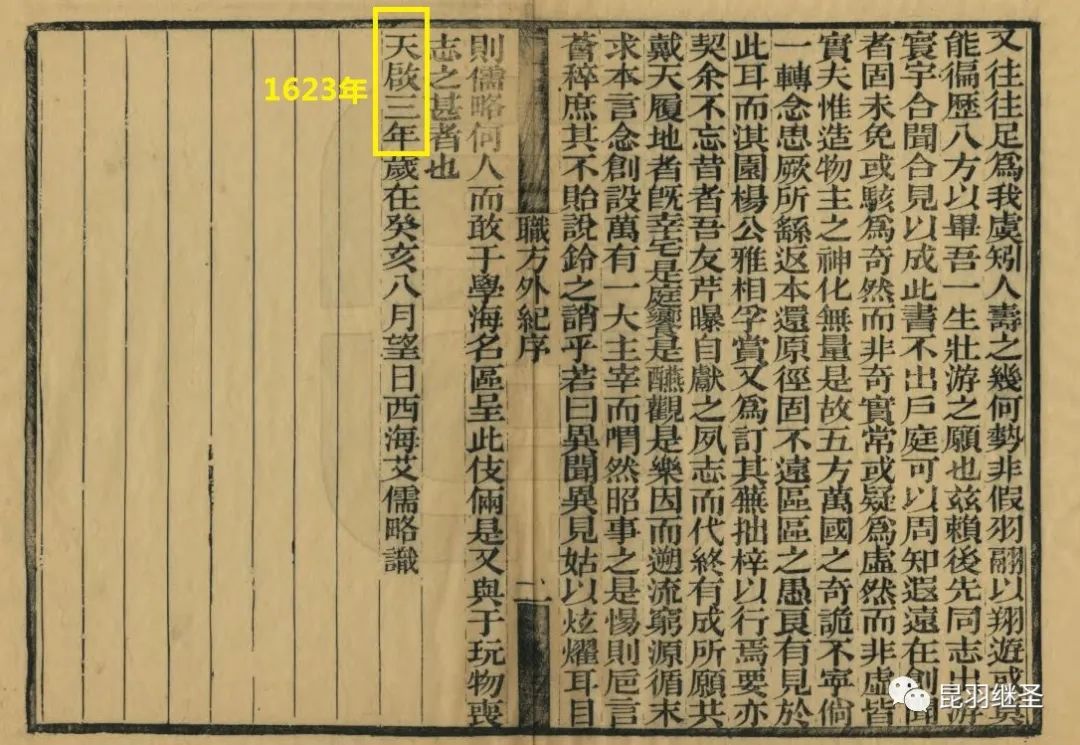 又往往足爲我虔矧人壽之幾何勢非假羽翮以翔遊或莫
能徧歷八方以畢吾一生壯游之願也兹賴後先同志出游
寰宇合聞合見以成此書不出戶庭可以周知遐遠在創聞
者固未免或駭爲奇然而非奇實常或疑爲虛然而非虛皆
實夫惟造物主之神化無量是故五方萬國之奇詭不寧倘
一轉念思厥所繇返本還原徑固不遠區區之愚良有見於
此耳而淇園楊公雅相孚賞又爲訂其蕪拙梓以行焉要亦
契余不忘昔者吾友芹曝自獻之夙志而代終有成所願共
戴天履地者旣幸宅是庭饗是醼觀是樂因而遡流窮源循末
求本言念創設萬有一大主宰而喟然昭事之是惕則巵言
薈稡庶其不貽說鈴之誚乎若曰異聞異見姑以炫燿耳目
職方外紀序
二
則儒略何人而敢于學海名區呈此伎倆是又與于玩物喪
志之甚者也
天啟三年歲在癸亥八月望日西海艾儒略識
1623年
昆羽继圣